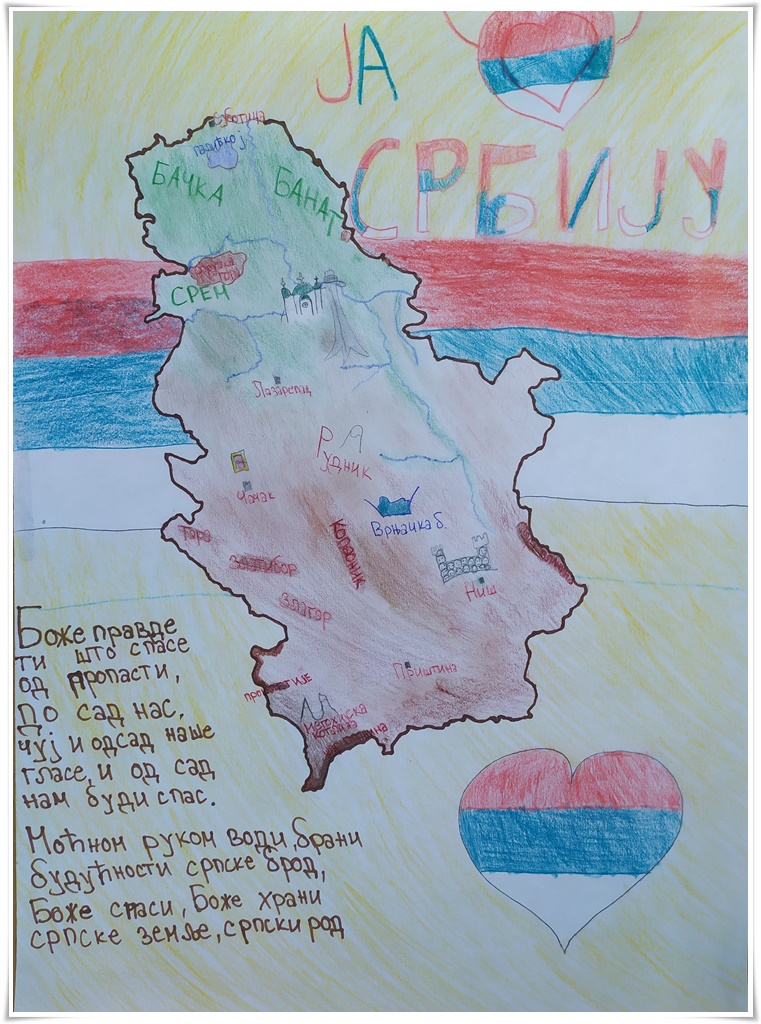 ЈА
СРБИЈУ
Суботица
БАЧКА
БАНАТ
СРЕМ
Лазаревац
РУДНИК
Чачак
Врњачка б.
Тара
Златибор
Копаоник
Златар
Ниш
Приштина
Боже правде
ти што спасе
од пропасти,
до сад нас,
чуј и одсад наше
гласе, и од сад
нам буди спас.
Моћном руком води, брани
будућности српске брод,
Боже спаси, Боже храни
српске земље, српски род